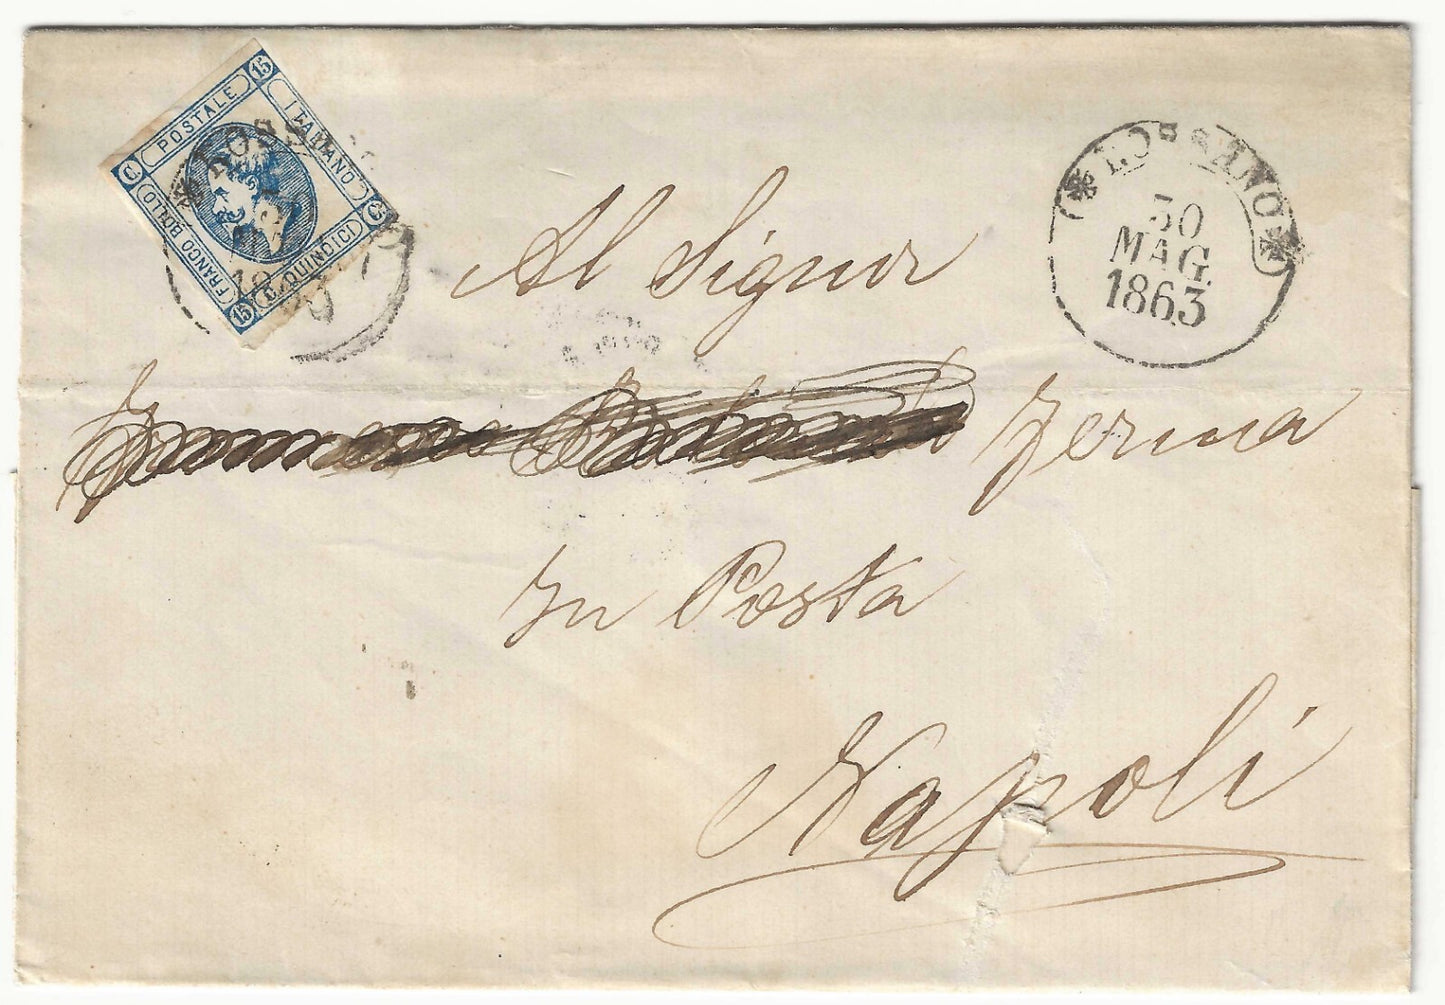 C. POSTALE 15
ITALIANO C.
FRANCO BOLLO
15 C. QUINDICI
ROSSANO
ROSSANO
30
MAG
1863
Al Signor
In Posta
Napoli